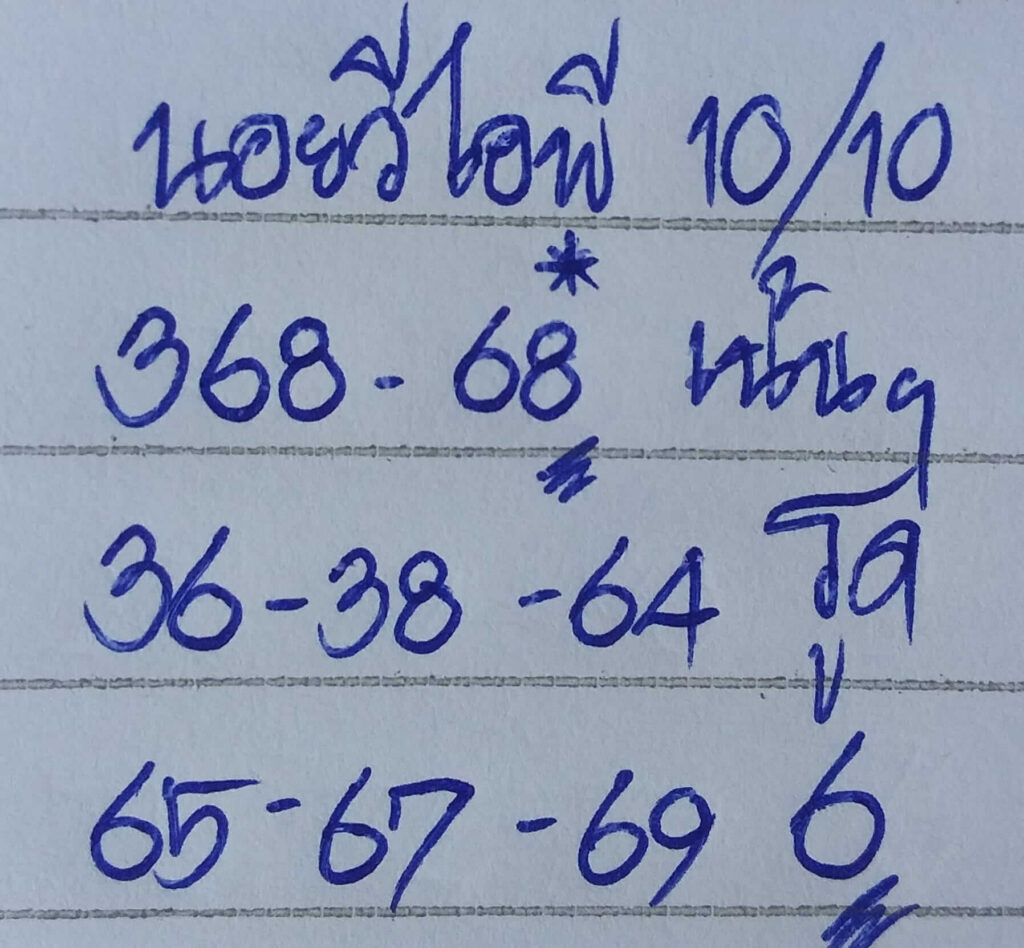 นอยวีไอพี 10/10
*
368 - 68 เน้นๆ
36 - 38 - 64 รูด
65 - 67 - 69 6